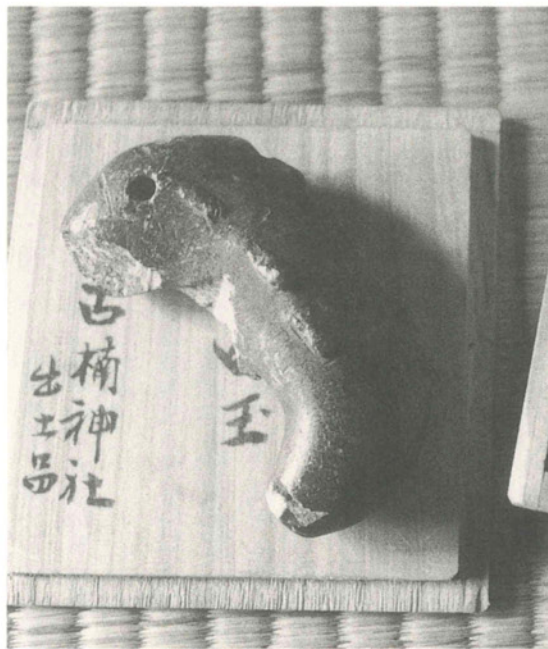 玉
楠神社
出土品